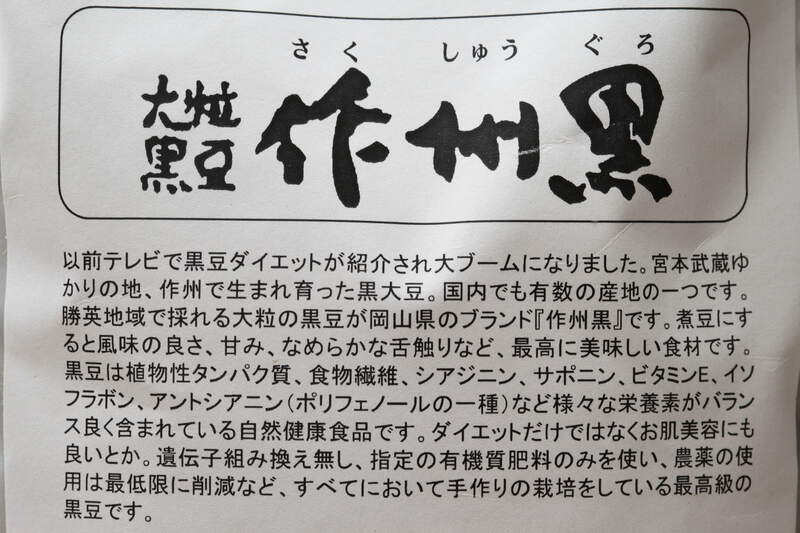 さくしゅうぐろ
大粒
黒豆
作州黒
以前テレビで黒豆ダイエットが紹介され大ブームになりました。宮本武蔵ゆ
かりの地、作州で生まれ育った黒大豆。国内でも有数の産地の一つです。
勝英地域で採れる大粒の黒豆が岡山県のブランド『作州黒』です。煮豆にす
ると風味の良さ、甘み、なめらかな舌触りなど、最高に美味しい食材です。
黒豆は植物性タンパク質、食物繊維、シアジニン、サポニン、ビタミンE、イソ
フラボン、アントシアニン（ポリフェノールの一種）など様々な栄養素がバラン
ス良く含まれている自然健康食品です。ダイエットだけではなくお肌美容にも
良いとか。遺伝子組み換え無し、指定の有機質肥料のみを使い、農薬の使
用は最低限に削減など、すべてにおいて手作りの栽培をしている最高級の
黒豆です。